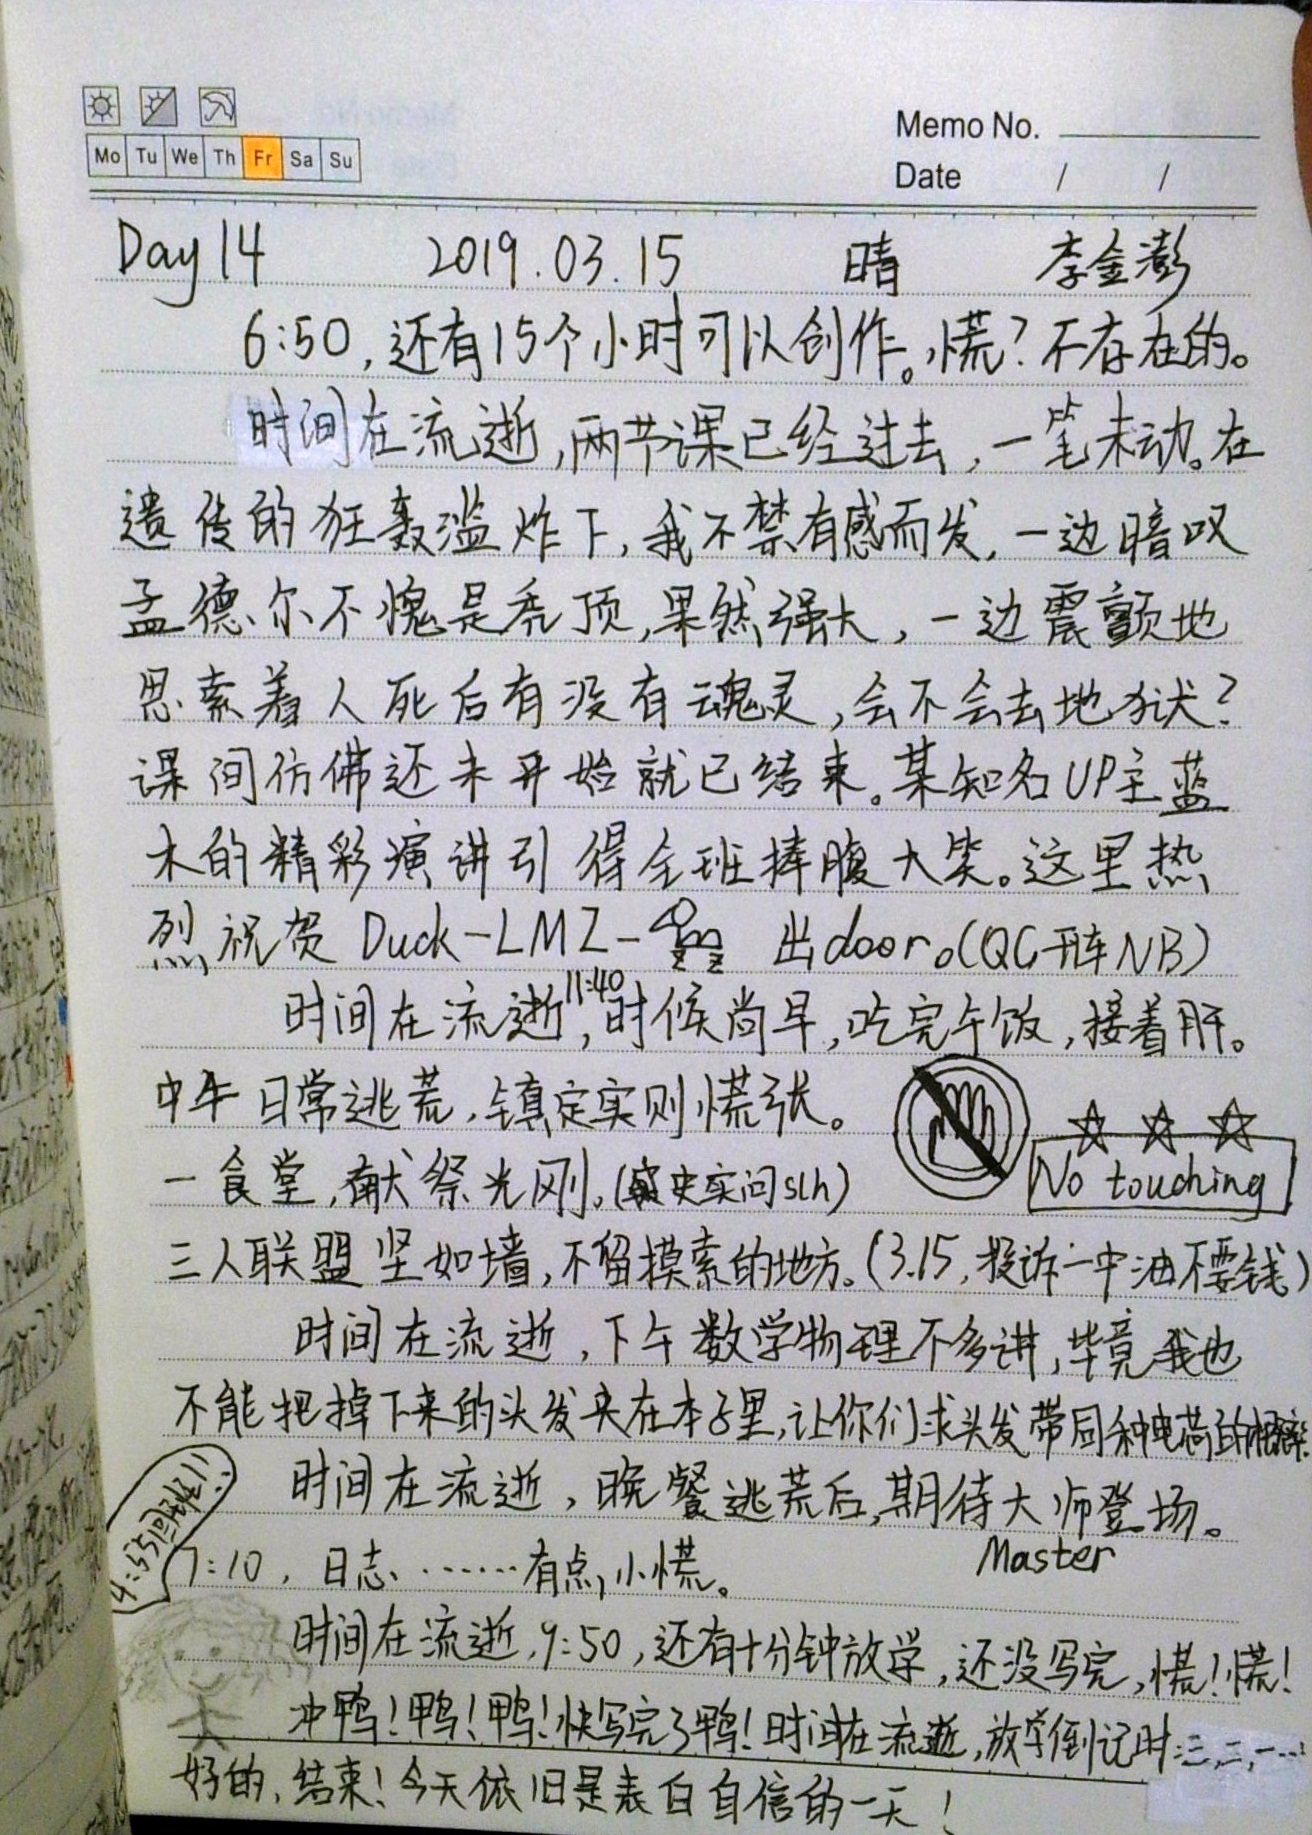 Memo No.
Mo Tu We Th Fr Sa Su
Date / /
Day 14 2019.03.15 晴 李金澎
6:50,还有15个小时可以创作。慌?不存在的。
时间在流逝,两节课已经过去,一笔未动。在
遗传的狂轰滥炸下,我不禁有感而发,一边暗叹
孟德尔不愧是秃顶,果然强大,一边震颤地
思索着人死后有没有魂灵,会不会去地狱?
课间仿佛还未开始就已结束。某知名UP主蓝
木的精彩演讲引得全班捧腹大笑。这里热
烈祝贺 Duck-LMZ- 出door。(QG开车NB)
11:40
时间在流逝,时候尚早,吃完午饭,接着肝。
中午日常逃荒,镇定实则慌张。
一食堂,献祭光刚。(史实问slh)
No touching
三人联盟坚如墙,不留摸索的地方。(3.15,投诉一中油不要钱)
时间在流逝,下午数学物理不多讲,毕竟我也
不能把掉下来的头发夹在本子里,让你们求头发带同种电荷的概率
时间在流逝,晚餐逃荒后,期待大师登场。
Master
7:10,日志、……有点小慌。
时间在流逝,9:50,还有十分钟放学,还没写完,慌!慌!
冲鸭!鸭!鸭!快写完了鸭!时间在流逝,放学倒记时:三,二,一…
好的,结束!今天依旧是表白自信的一天!